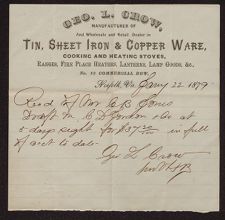 GEO. L. CROW,
MANUFACTURER OF
And Wholesale and Retail Dealer in
TIN, SHEET IRON & COPPER WARE,
COOKING AND HEATING STOVES,
RANGES, FIRE PLACE HEATERS, LANTERNS, LAMP GOODS, &c.
No. 10 COMMERCIAL ROW.
Norfolk, Va. Jany 22 1879
Recd of Mr C B Jones
Draft M. C D Gordon & Co at
5 days sight for $37 20/100 in full
of acct to date
Geo L Crow